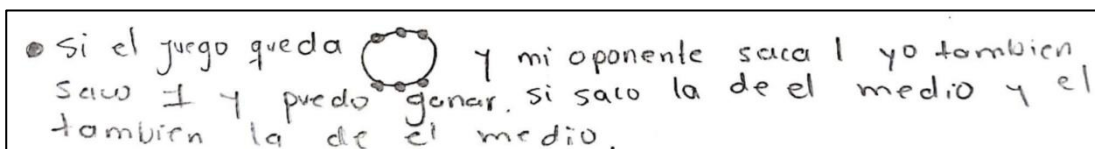 • si el juego queda y mi oponente saca 1 yo tambien
saco 1 y puedo ganar. si saco la de el medio y el
tambien la de el medio.